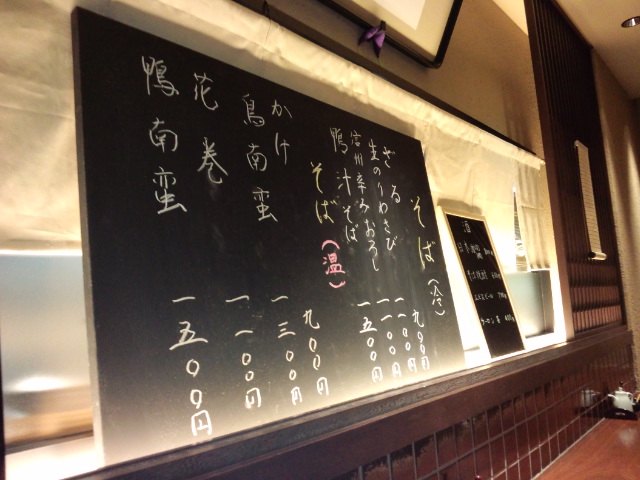 そば（冷）
ざる 九〇〇円
生のりわさび 一一〇〇円
信州辛みおろし 一一〇〇円
鴨汁そば 一五〇〇円
そば（温）
かけ 九〇〇円
鳥南蛮 一三〇〇円
花巻 一一〇〇円
鴨南蛮 一五〇〇円
酒